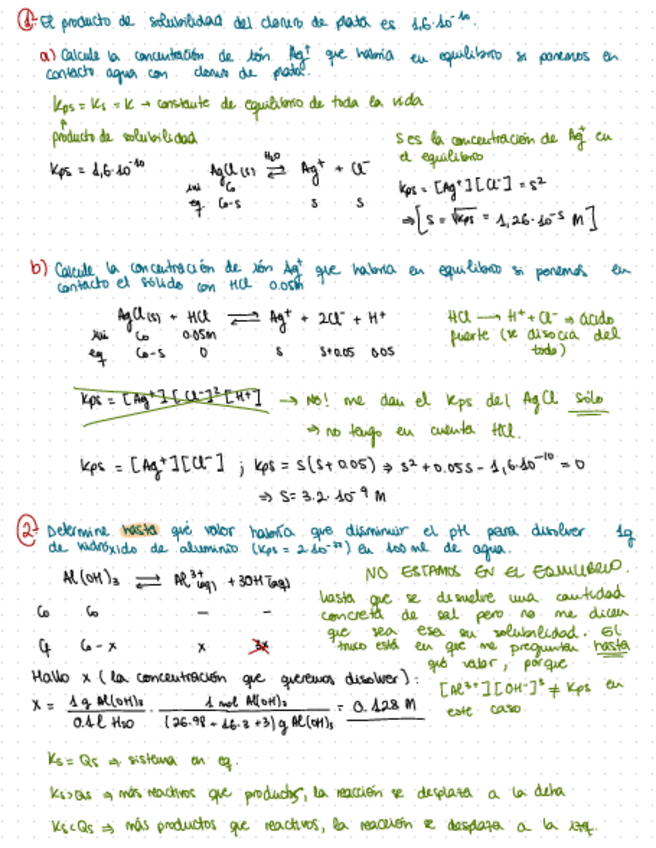 1- El producto de solubilidad del cloruro de plata es 1,6·10⁻¹⁰.
a) Calcule la concentración de ión Ag⁺ que habría en equilibrio si ponemos en
contacto agua con cloruro de plata.
Kps = Ks = K → constante de equilibrio de toda la vida
↑
producto de solubilidad
S es la concentración de Ag⁺ en
el equilibrio
Kps = 1,6·10⁻¹⁰ AgCl(s) ⇌ Ag⁺ + Cl⁻
H₂O
ini Co
eq. Co-s s s
Kps = [Ag⁺][Cl⁻] = s²
⇒ [S = √Kps = 1,26·10⁻⁵ M]
b) Calcule la concentración de ión Ag⁺ que habría en equilibrio si ponemos en
contacto el sólido con HCl 0.05M
AgCl(s) + HCl ⇌ Ag⁺ + 2Cl⁻ + H⁺
ini Co 0.05M
eq Co-s 0 s s+0.05 0.05
HCl → H⁺ + Cl⁻ ⇒ ácido
fuerte (se disocia del
todo)
Kps = [Ag⁺][Cl⁻]²[H⁺] → No! me dan el Kps del AgCl sólo
⇒ no tengo en cuenta HCl.
Kps = [Ag⁺][Cl⁻] ; Kps = s(s+0.05) ⇒ s² + 0.05s - 1,6·10⁻¹⁰ = 0
⇒ S = 3.2·10⁻⁹ M
2- Determine hasta qué valor habría que disminuir el pH para disolver 1g
de hidróxido de aluminio (Kps = 2·10⁻³³) en 100 ml de agua.
Al(OH)₃ ⇌ Al³⁺(aq) + 3OH⁻(aq)
Co Co — —
Cf Co-x x 3x
NO ESTAMOS EN EL EQUILIBRIO.
hasta que se disuelve una cantidad
concreta de sal pero no me dicen
que sea esa su solubilidad. El
truco está en que me preguntan hasta
qué valor, porque
[Al³⁺][OH⁻]³ ≠ Kps en
este caso.
Hallo x (la concentración que queremos disolver):
x = 1g Al(OH)₃ / 0.1 l H₂O · 1 mol Al(OH)₃ / (26.98 + 16·3 + 3) g Al(OH)₃ = 0.128 M
Ks = Qs ⇒ sistema en eq.
Ks > Qs ⇒ más reactivos que productos, la reacción se desplaza a la dcha
Ks < Qs ⇒ más productos que reactivos, la reacción se desplaza a la izq.